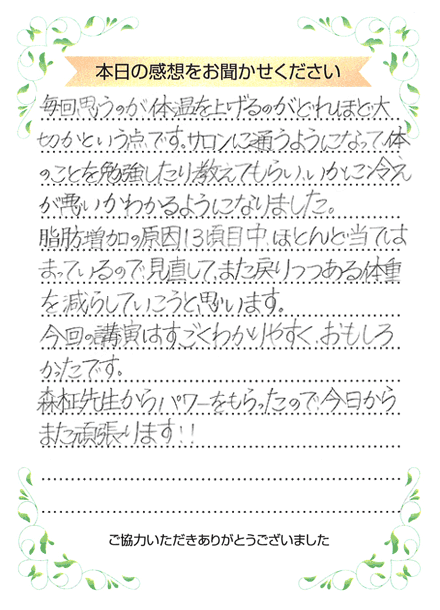 本日の感想をお聞かせください
毎回思うのが体温を上げるのがどれほど大
切かという点です。サロンに通うようになって、体
のことを勉強したり教えてもらい、いかに冷え
が悪いかわかるようになりました。
脂肪増加の原因13項目中、ほとんど当ては
まっているので見直して、また戻りつつある体重
を減らしていこうと思います。
今回の講演はすごくわかりやすく、おもしろ
かったです。
森柾先生からパワーをもらったので、今日から
また頑張ります!!
ご協力いただきありがとうございました